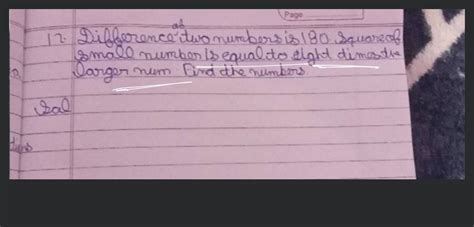 Page
17. Difference of two numbers is 180. Square of
small number is equal to eight times the
larger num Find the numbers
Sol